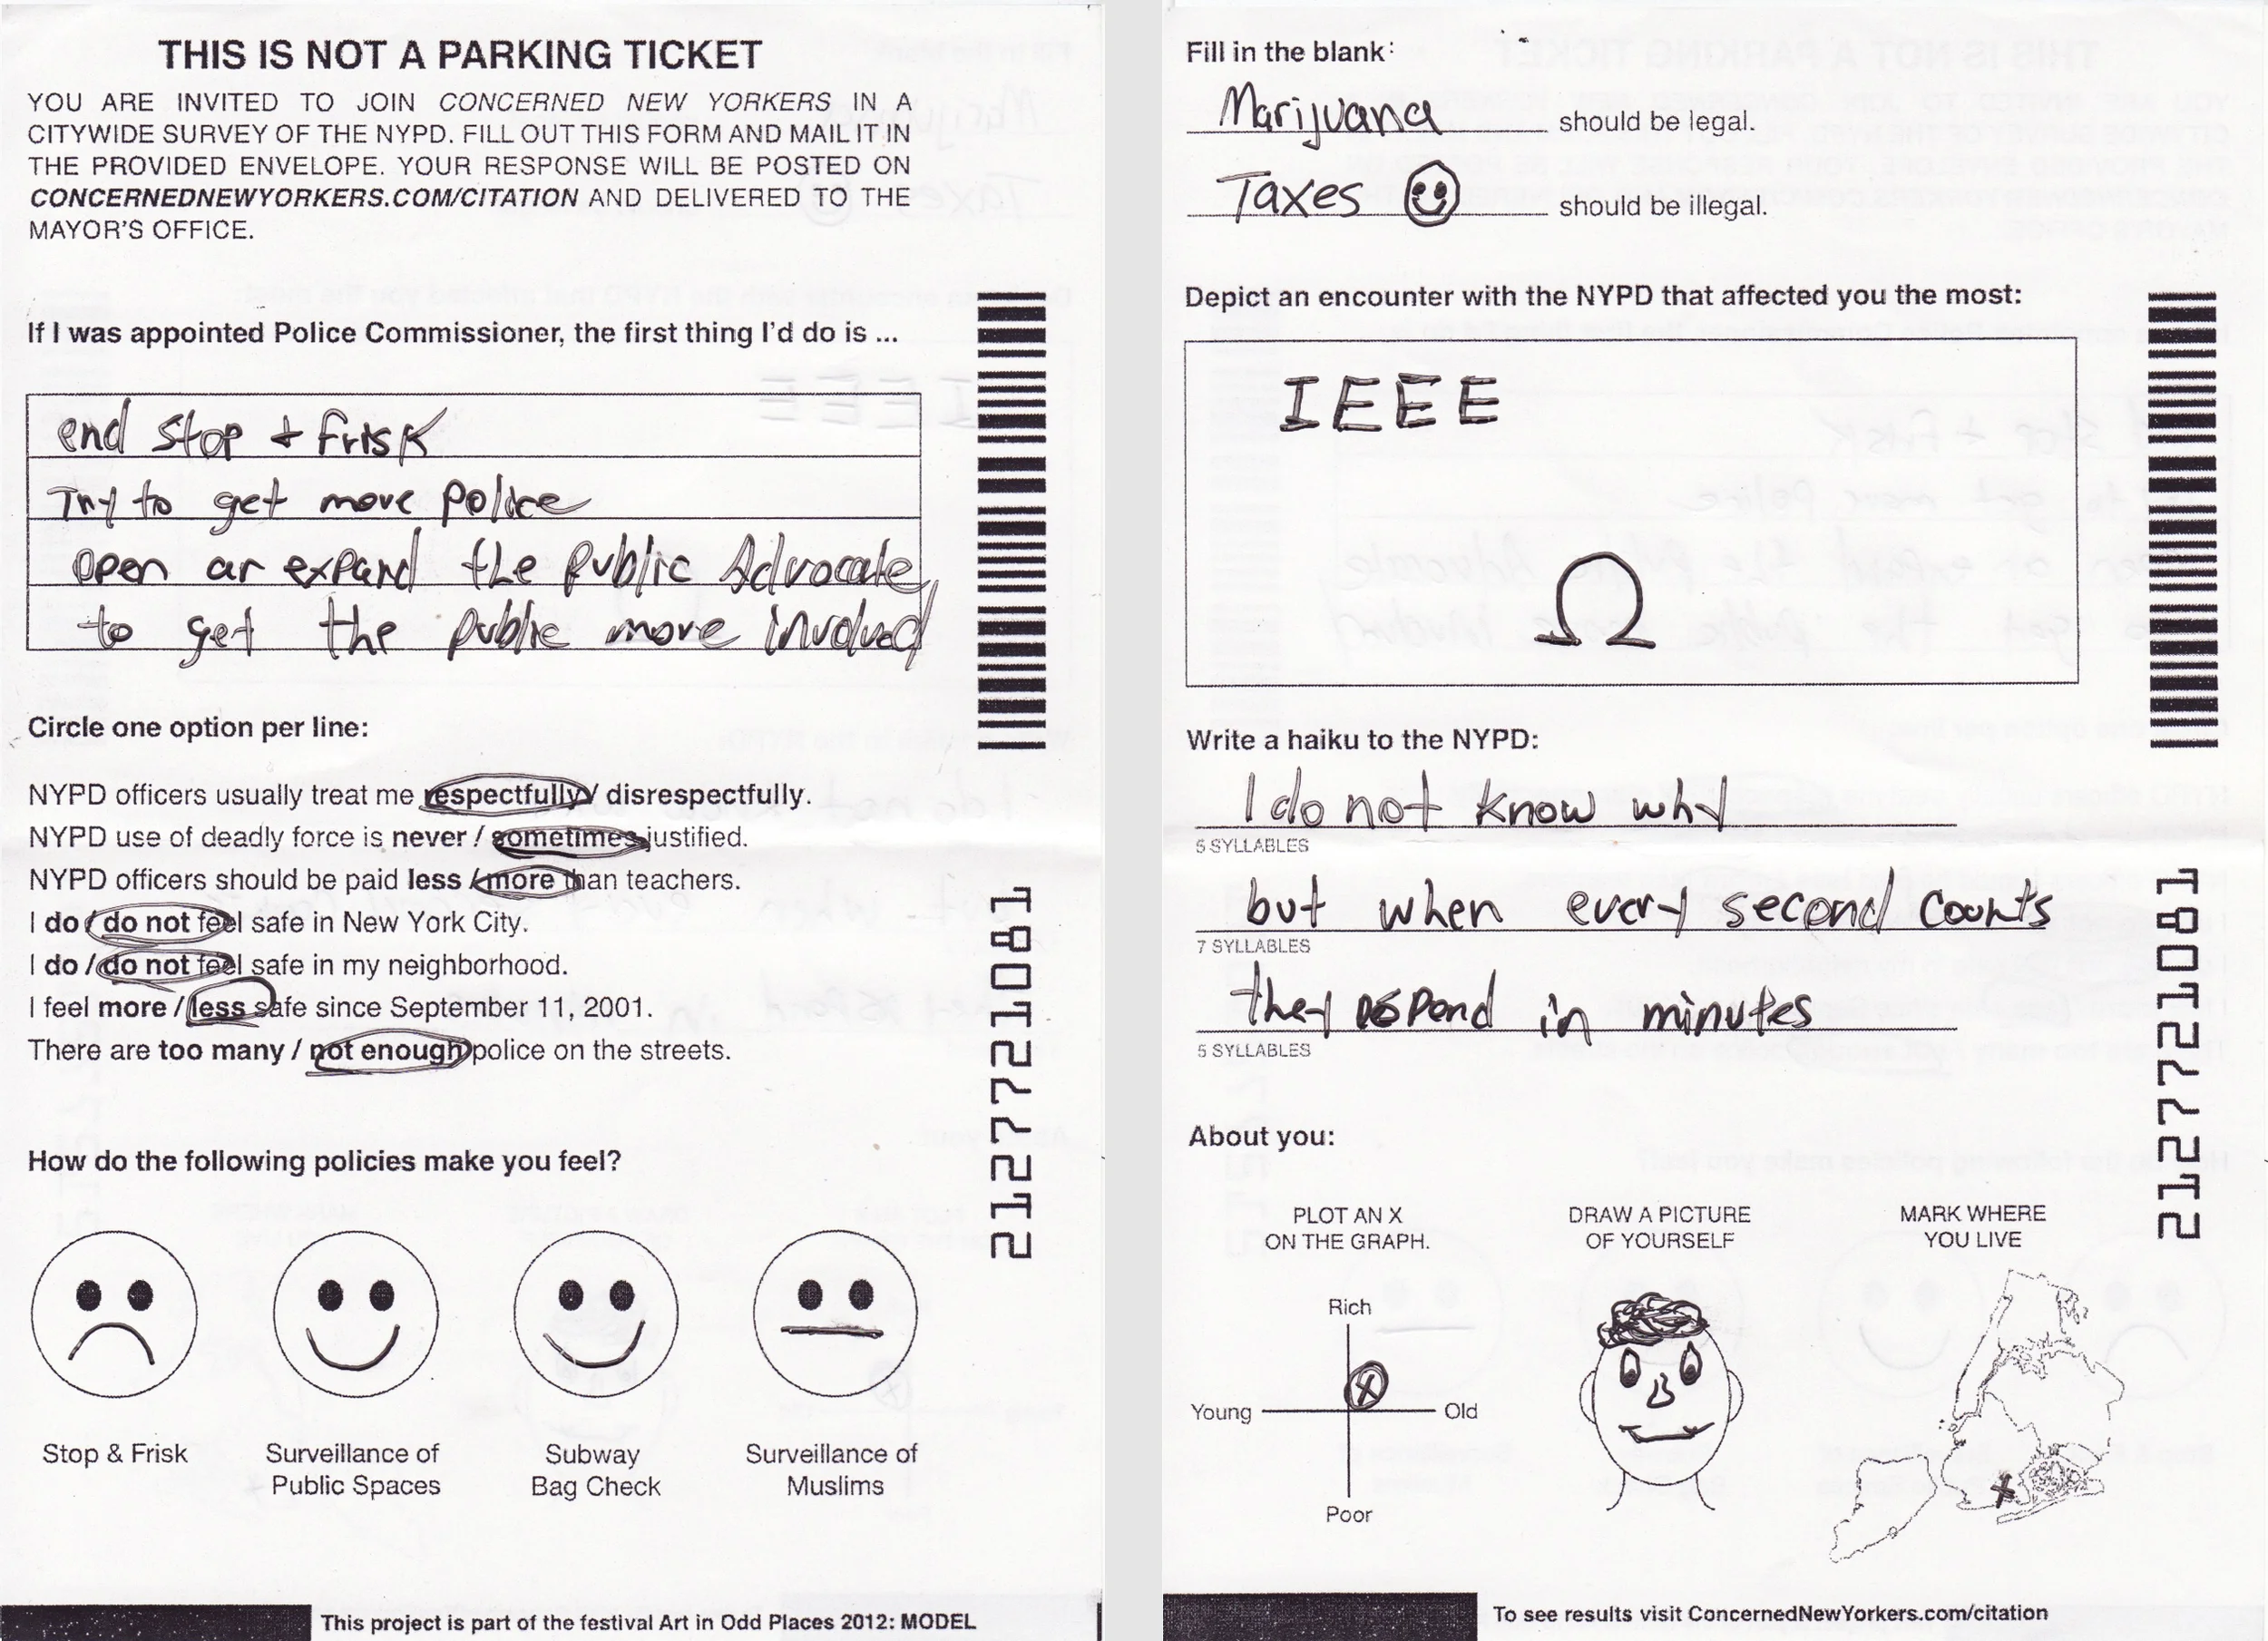 THIS IS NOT A PARKING TICKET
YOU ARE INVITED TO JOIN CONCERNED NEW YORKERS IN A
CITYWIDE SURVEY OF THE NYPD. FILL OUT THIS FORM AND MAIL IT IN
THE PROVIDED ENVELOPE. YOUR RESPONSE WILL BE POSTED ON
CONCERNEDNEWYORKERS.COM/CITATION AND DELIVERED TO THE
MAYOR'S OFFICE.
If I was appointed Police Commissioner, the first thing I'd do is ...
end stop + frisk
Try to get more police
open or expand the public Advocate
to get the public more involved
Circle one option per line:
NYPD officers usually treat me respectfully / disrespectfully.
NYPD use of deadly force is never / sometimes justified.
NYPD officers should be paid less / more than teachers.
I do / do not feel safe in New York City.
I do / do not feel safe in my neighborhood.
I feel more / less safe since September 11, 2001.
There are too many / not enough police on the streets.
How do the following policies make you feel?
Stop & Frisk
Surveillance of
Public Spaces
Subway
Bag Check
Surveillance of
Muslims
2127721081
This project is part of the festival Art in Odd Places 2012: MODEL
Fill in the blank:
Marijuana should be legal.
Taxes should be illegal.
Depict an encounter with the NYPD that affected you the most:
IEEE
Ω
Write a haiku to the NYPD:
I do not know why
5 SYLLABLES
but when every second counts
7 SYLLABLES
they respond in minutes
5 SYLLABLES
About you:
PLOT AN X
ON THE GRAPH.
Rich
Young
Old
Poor
DRAW A PICTURE
OF YOURSELF
MARK WHERE
YOU LIVE
2127721081
To see results visit ConcernedNewYorkers.com/citation